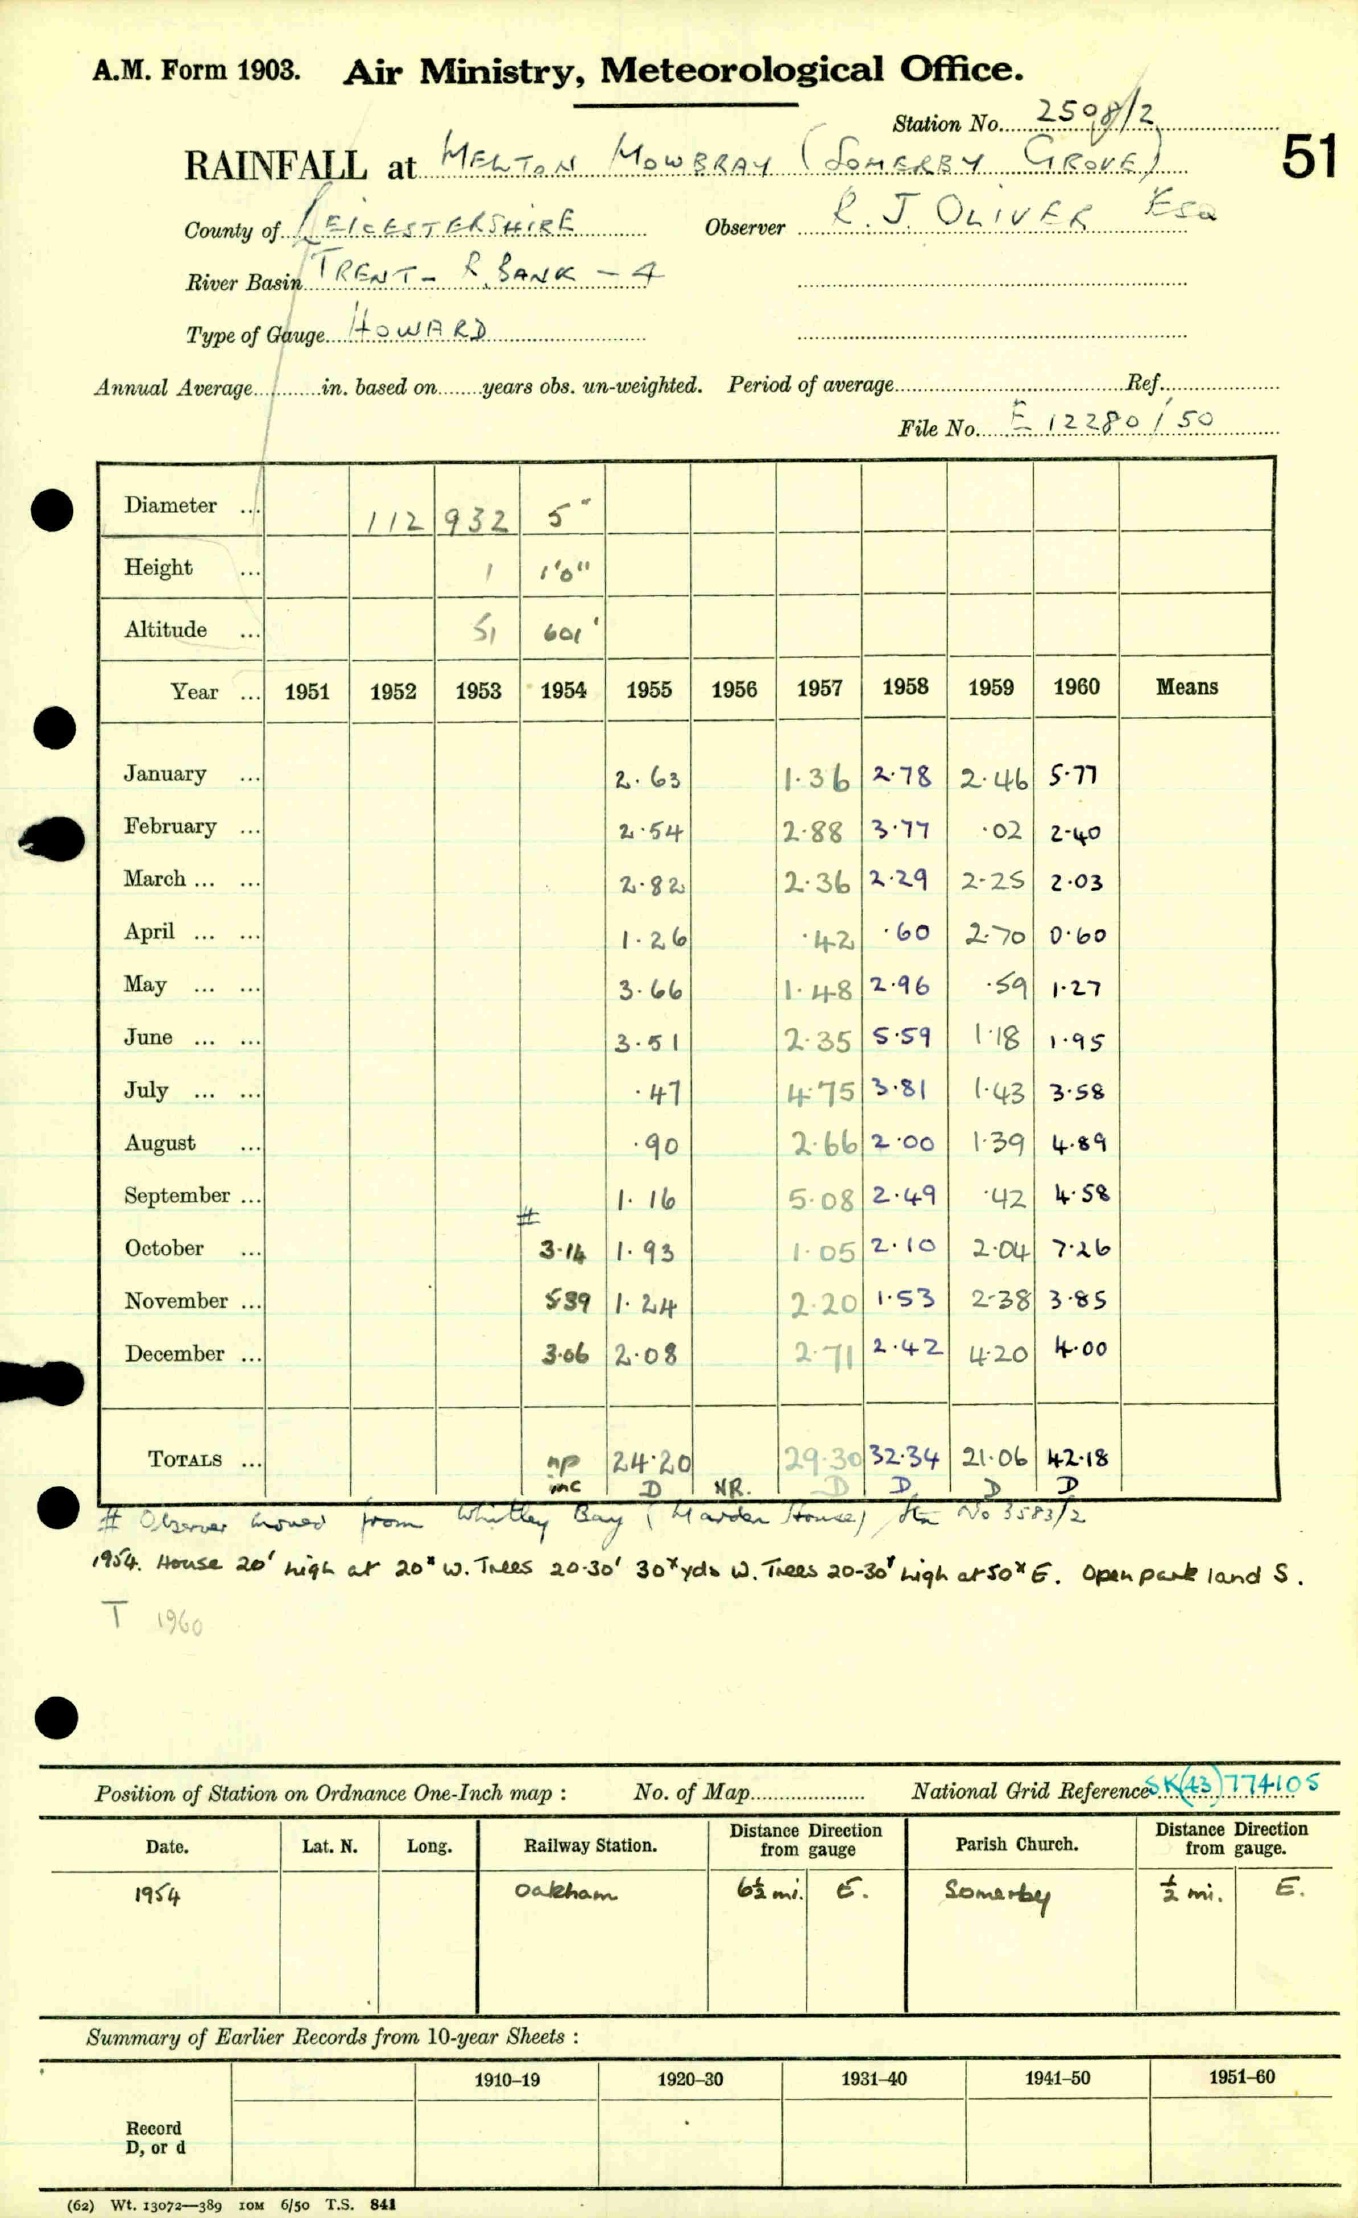 A.M. Form 1903. Air Ministry, Meteorological Office.
Station No. 2508/2
51
RAINFALL at MELTON MOWBRAY (SOMERBY GROVE)
County of LEICESTERSHIRE Observer R. J. OLIVER Esq
River Basin TRENT - R. BANK - 4
Type of Gauge HOWARD
Annual Average in. based on years obs. un-weighted. Period of average Ref.
File No. E 12280/50
Diameter ... 112 932 5"
Height ... 1 1'0"
Altitude ... 51 601'
Year ... 1951 1952 1953 1954 1955 1956 1957 1958 1959 1960 Means
January ... 2.63 1.36 2.78 2.46 5.77
February ... 2.54 2.88 3.77 .02 2.40
March ... ... 2.82 2.36 2.29 2.25 2.03
April ... ... 1.26 .42 .60 2.70 0.60
May ... ... 3.66 1.48 2.96 .59 1.27
June ... ... 3.51 2.35 5.59 1.18 1.95
July ... ... .47 4.75 3.81 1.43 3.58
August ... .90 2.66 2.00 1.39 4.89
September ... 1.16 5.08 2.49 .42 4.58
#
October ... 3.14 1.93 1.05 2.10 2.04 7.26
November ... 5.39 1.24 2.20 1.53 2.38 3.85
December ... 3.06 2.08 2.71 2.42 4.20 4.00
TOTALS ... np 24.20 29.30 32.34 21.06 42.18
inc D NR. D D D D
# Observer moved from Whitley Bay (Marden House) Stn No 3583/2
1954. House 20' high at 20x W. Trees 20-30' 30x yds W. Trees 20-30' high at 50x E. Open park land S.
T 1960
Position of Station on Ordnance One-Inch map : No. of Map National Grid Reference SK(43)774105
Date. Lat. N. Long. Railway Station. Distance from gauge Direction Parish Church. Distance from gauge. Direction
1954 Oakham 6½ mi. E. Somerby ½ mi. E.
Summary of Earlier Records from 10-year Sheets :
1910–19 1920–30 1931–40 1941–50 1951–60
Record
D, or d
(62) Wt. 13072—389 10M 6/50 T.S. 841